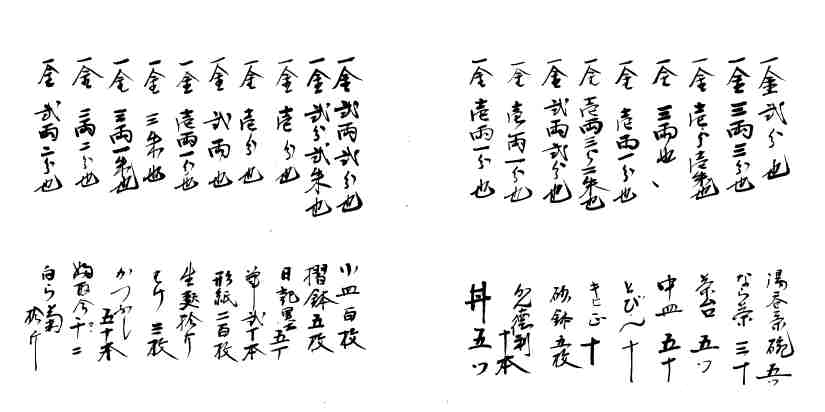 一金弐分也　湯呑茶碗五ツ
一金三両三分也　なら茶三十
一金壱分壱朱也　茶台五ツ
一金三両也、　中皿五十
一金壱両一分也　とびん十
一金壱両三分二朱也　十
一金弐両弐分也　砂鉢五枚
一金壱両一分也　徳利十本
一金壱両一分也　丼五ツ
一金弐両弐分也　小皿百枚
一金弐分弐朱也　摺鉢五枚
一金壱分也　日記墨五丁
一金壱分也　筆弐十本
一金弐両也　形紙二百枚
一金壱両一分也　生麩拾斤
一金三朱也　はけ三枚
一金三両一朱也　かつぶし五十本
一金二両二分也　十二
一金弐両二分也　拾斤